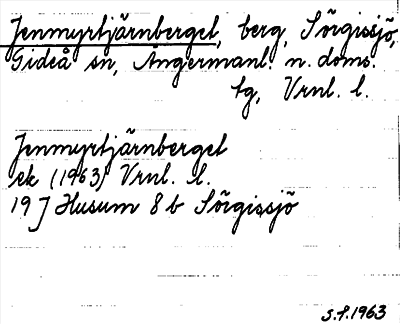 Jenmyrtjärnberget, berg, Sörgissjö,
Gideå sn, Ångermanl. n. doms.
tg, Vrnl. l.
Jenmyrtjärnberget
ek (1963) Vrnl. l.
19 J Husum 8 b Sörgissjö
S.P. 1963